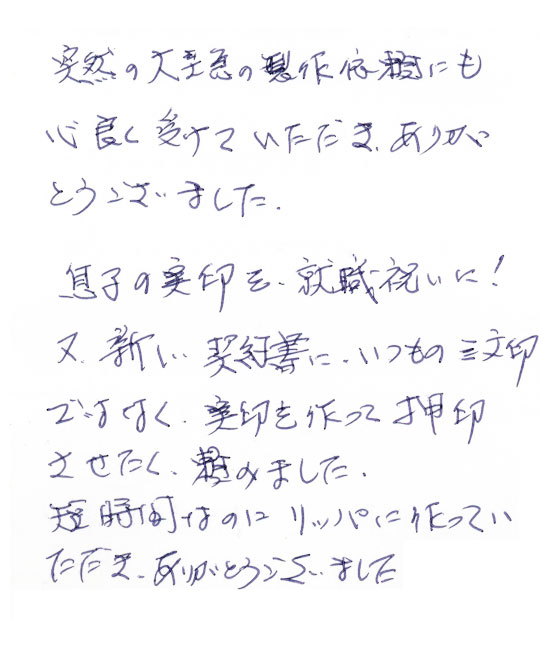 突然の大至急の製作依頼にも
心良く受けていただき、ありが
とうございました。
息子の実印を、就職祝いに！
又、新しい契約書に、いつもの三文印
ではなく、実印を作って押印
させたく、頼みました。
短時間なのにリッパに作ってい
ただき、ありがとうございました